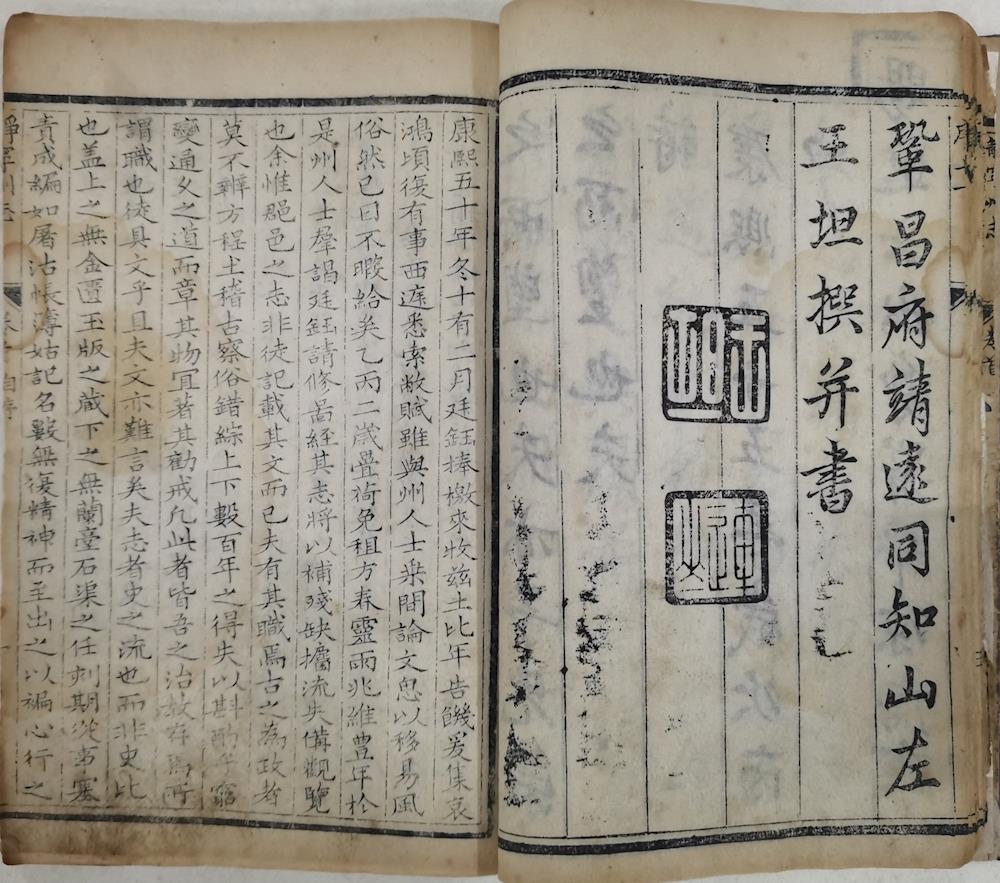 鞏昌府靖遠同知山左
王坦撰并書
康熙五十年冬十有二月廷鈺捧檄來牧茲土比年告饑爰集哀
鴻頃復有事西陲悉索敝賦雖與州人士乘間論文思以移易風
俗然已日不暇給矣乙丙二歲疊荷免租方春靈雨兆維豊年於
是州人士羣謁廷鈺請修啚經其志將以補殘缺攟流失備觀覽
也余惟郡邑之志非徒記載其文而已夫有其職焉古之為政者
莫不辨方程土稽古察俗錯綜上下數百年之得失以斟酌 窮
變通久之道而章其物宜著其勸戒凡此者皆吾之治故存焉所
謂職也徒具文乎且夫文亦難言矣夫志者史之流也而非史比
也盖上之無金匱玉版之蔵下之無蘭臺石渠之任刺期從事塞
責成編如屠沽帳薄姑記名數無復精神而至出之以褊心行之
靜寧州志 自序